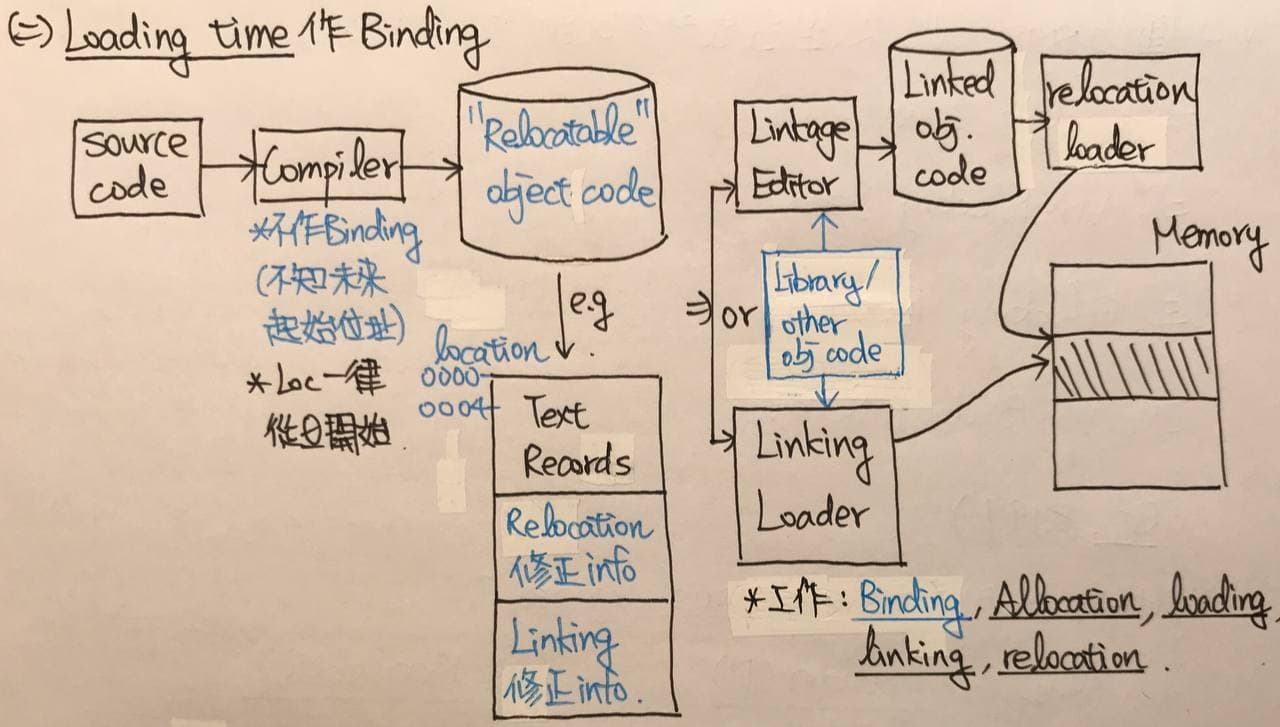 (二) Loading time 作 Binding
source
code
Compiler
*不作Binding
(不知未來
起始位址)
*Loc一律
從0開始
"Relocatable"
object code
e.g.
location
0000
0004
Text
Records
Relocation
修正info
Linking
修正info.
⇒ or
Linkage
Editor
Library/
other
obj code
Linking
Loader
Linked
obj.
code
relocation
loader
Memory
*工作: Binding, Allocation, loading,
linking, relocation.